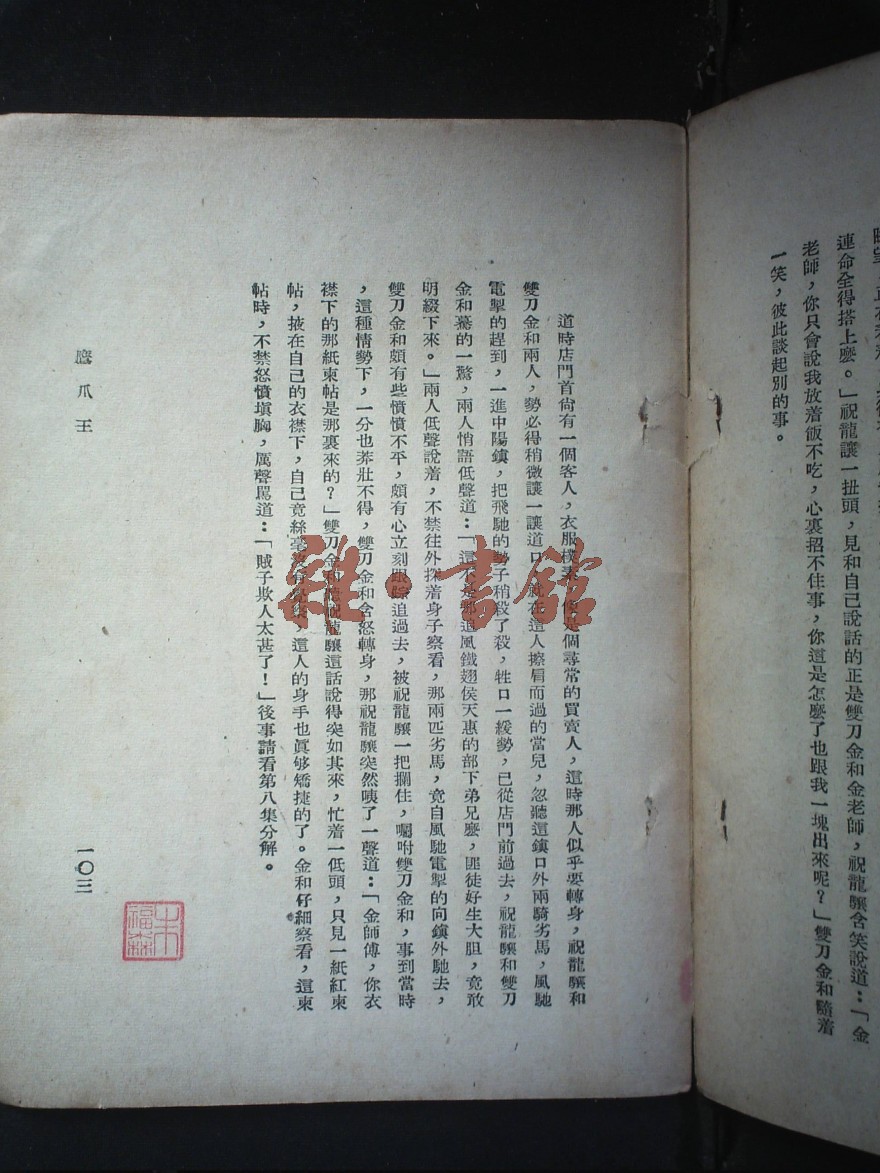 連命全得搭上麽。」祝龍讓一扯頭，見和自己說話的正是雙刀金和金老師，祝龍驤含笑說道：「金
老師，你只會說我放着飯不吃，心裏招不住事，你這是怎麽了也跟我一塊出來呢？」雙刀金和隨着
一笑，彼此談起別的事。
道時店門首尙有一個客人，衣服樸素，是個尋常的買賣人，這時那人似乎要轉身，祝龍驤和
雙刀金和兩人，勢必得稍微讓一讓道口，就在這人擦肩而過的當兒，忽聽這鎭口外兩騎劣馬，風馳
電掣的趕到，一進中陽鎭，把飛馳的勢子稍殺了殺，牲口一緩勢，已從店門前過去，祝龍驤和雙刀
金和驀的一驚，兩人悄語低聲道：「這不是那追風鐵翅侯天惠的部下弟兄麽，匪徒好生大胆，竟敢
明綴下來。」兩人低聲說着，不禁往外探着身子察看，那兩匹劣馬，竟自風馳電掣的向鎭外馳去，
雙刀金和頗有些憤憤不平，頗有心立刻跟踪追過去，被祝龍驤一把攔住，囑咐雙刀金和，事到當時
，這種情勢下，一分也莽壯不得，雙刀金和含怒轉身，那祝龍驤突然咦了一聲道：「金師傅，你衣
襟下的那紙柬帖是那裏來的？」雙刀金和祝龍驤這話說得突如其來，忙着一低頭，只見一紙紅柬
帖，掖在自己的衣襟下，自己竟絲毫，這人的身手也眞够矯捷的了。金和仔細察看，這柬
帖時，不禁怒憤塡胸，厲聲罵道：「賊子欺人太甚了！」後事請看第八集分解。
鷹爪王
一〇三
朱福森
雜·書館